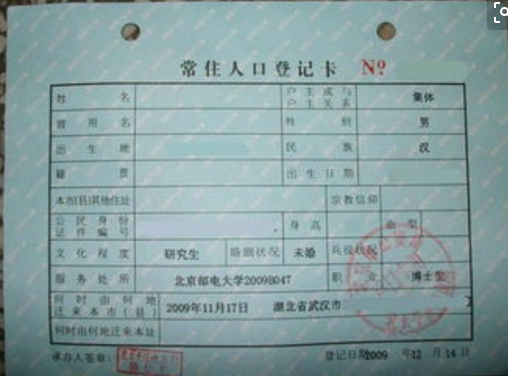 常住人口登记卡 No
姓名 户主或与户主关系 集体
曾用名 性别 男
出生地 民族 汉
籍贯 出生日期
本市(县)其他住址 宗教信仰
公民身份证件编号 身高 血型
文化程度 研究生 婚姻状况 未婚 兵役状况
服务处所 北京邮电大学2009B047 职业 博士生
何时由何地迁来本市(县) 2009年11月17日 湖北省武汉市
何时由何地迁来本址
承办人签章: 登记日期2009年12月14日